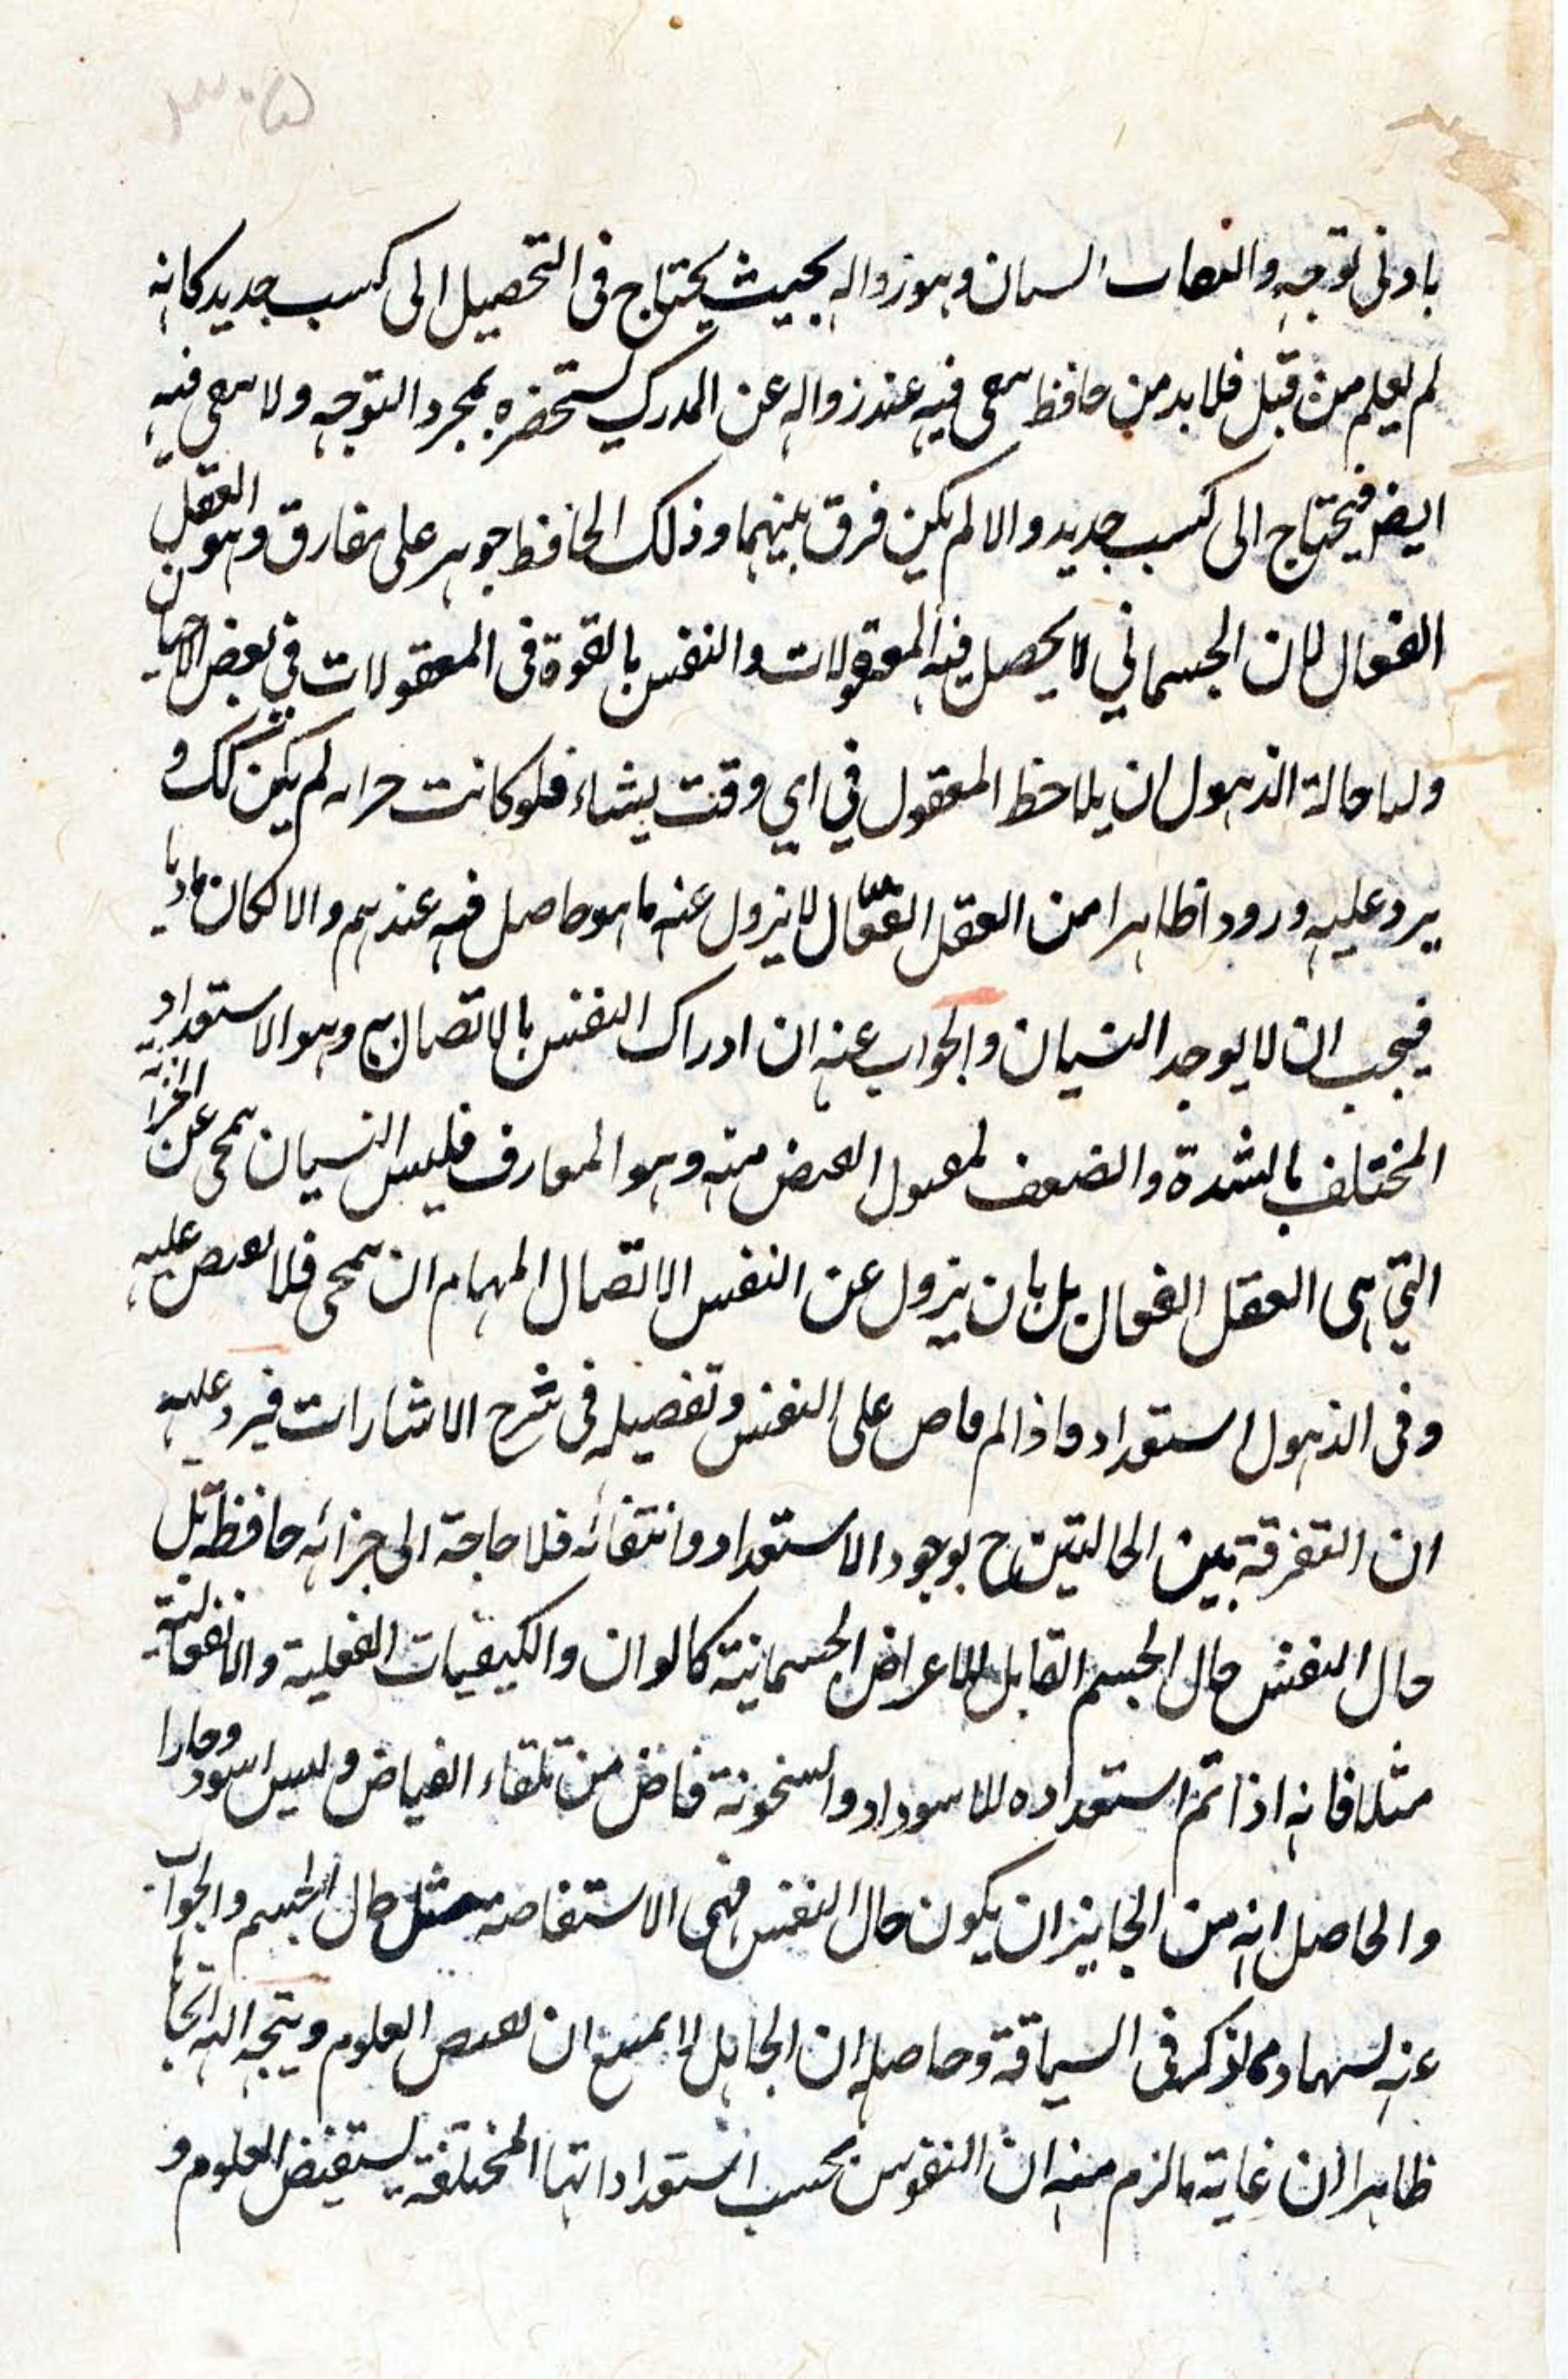 ٣٠٥
بادنى توجه والتفات النسيان وهو زواله بحيث يحتاج فى التحصيل الى كسب جديد كانه
لم يعلم من قبل فلا بد من حافظ يبقى فيه عند زواله عن المدرك يستحضره بمجرد التوجه ولا يبقى فيه
ايضا فيحتاج الى كسب جديد والا لم يكن فرق بينهما وذلك الحافظ جوهر على مفارق وهو العقل
الفعال لان الجسمانى لا يحصل فيه المعقولات والنفس بالقوة فى المعقولات فى بعض الاحيان
ولها حالة الذهول ان يلاحظ المعقول فى اي وقت يشاء فلو كانت خزانه لم يكن كك و
يرد عليه ورودا ظاهرا من العقل الفعّال لا يزول عنه ما هو حاصل فيه عندهم والا لكان ماديا
فيجب ان لا يوجد النسيان والجواب عنه ان ادراك النفس بالاتصال به وهو الاستعداد
المختلف بالشدة والضعف لقبول الفيض منه وهو المعارف فليس النسيان يمحى عن الخزانة
التي هى العقل الفعال بل بان يزول عن النفس الاتصال المهام ان يمحى فلا يفيض عليه
وفى الذهول استعداد واذا لم فاض على النفس وتفصيله فى شرح الاشارات فيرد عليه
ان التفرقة بين الحالتين ح بوجود الاستعداد وانتفائه فلا حاجة الى خزانه حافظة بل
حال النفس حال الجسم القابل للاعراض الجسمانية كالوان والكيفيات الفعلية والانفعالية
مثلا فانه اذا تم استعداده للاسوداد والسخونة فاض من تلقاء الفياض وليس اسود وحارا
والحاصل انه من الجايز ان يكون حال النفس فى الاستفاضة مثل حال الجسم والجواب
عنه فى السياقة وحاصله ان الجاهل لا يمنع ان يفيض العلوم ويتجه اليه
ظاهرا ان غاية ما لزم منه ان النفوس بحسب استعداداتها المختلفة يستفيض العلوم و